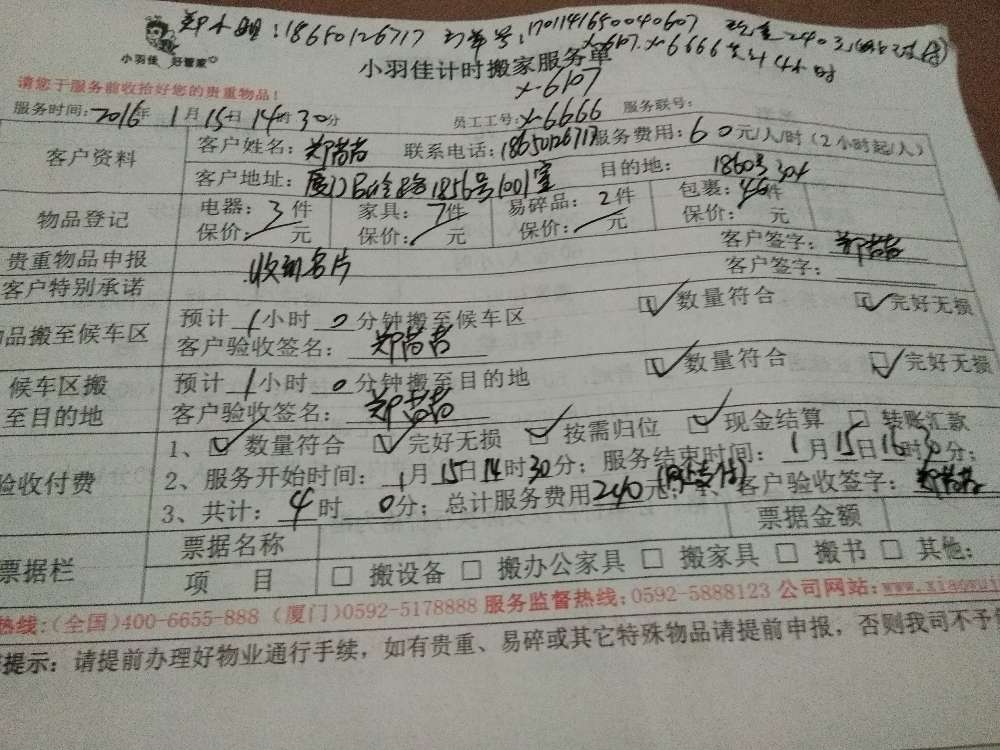 郑小姐：18650126717 订单号：1701141650040607
X-6107.X-6666 共计4小时
小羽佳 好管家
小羽佳计时搬家服务单
请您于服务前收拾好您的贵重物品！
X-6107
服务时间：2016年1月15日14时30分 员工工号：X-6666 服务联号：
客户资料 客户姓名：郑 联系电话：18650126717 服务费用：60元/人/时（2小时起/人）
客户地址：厦门 1856号1001室 目的地：1860号304
物品登记 电器：3件 家具：7件 易碎品：2件 包裹：45件
保价： 元 保价： 元 保价： 元 保价： 元
贵重物品申报 收到名片 客户签字：郑
客户特别承诺 客户签字：
品搬至候车区 预计1小时0分钟搬至候车区 ☑数量符合 ☑完好无损
客户验收签名：郑
候车区搬至目的地 预计1小时0分钟搬至目的地 ☑数量符合 ☑完好无损
客户验收签名：郑
验收付费 1、☑数量符合 ☑完好无损 ☑按需归位 ☑现金结算 □转账汇款
2、服务开始时间：1月15日14时30分；服务结束时间：1月15日16时30分；
3、共计：4时0分；总计服务费用240元；(网上支付) 4、客户验收签字：郑
票据栏 票据名称 票据金额
项 目 □搬设备 □搬办公家具 □搬家具 □搬书 □其他：
热线：(全国)400-6655-888 (厦门)0592-5178888 服务监督热线：0592-5888123 公司网站：www.xiaoyu
提示：请提前办理好物业通行手续，如有贵重、易碎或其它特殊物品请提前申报，否则我司不予